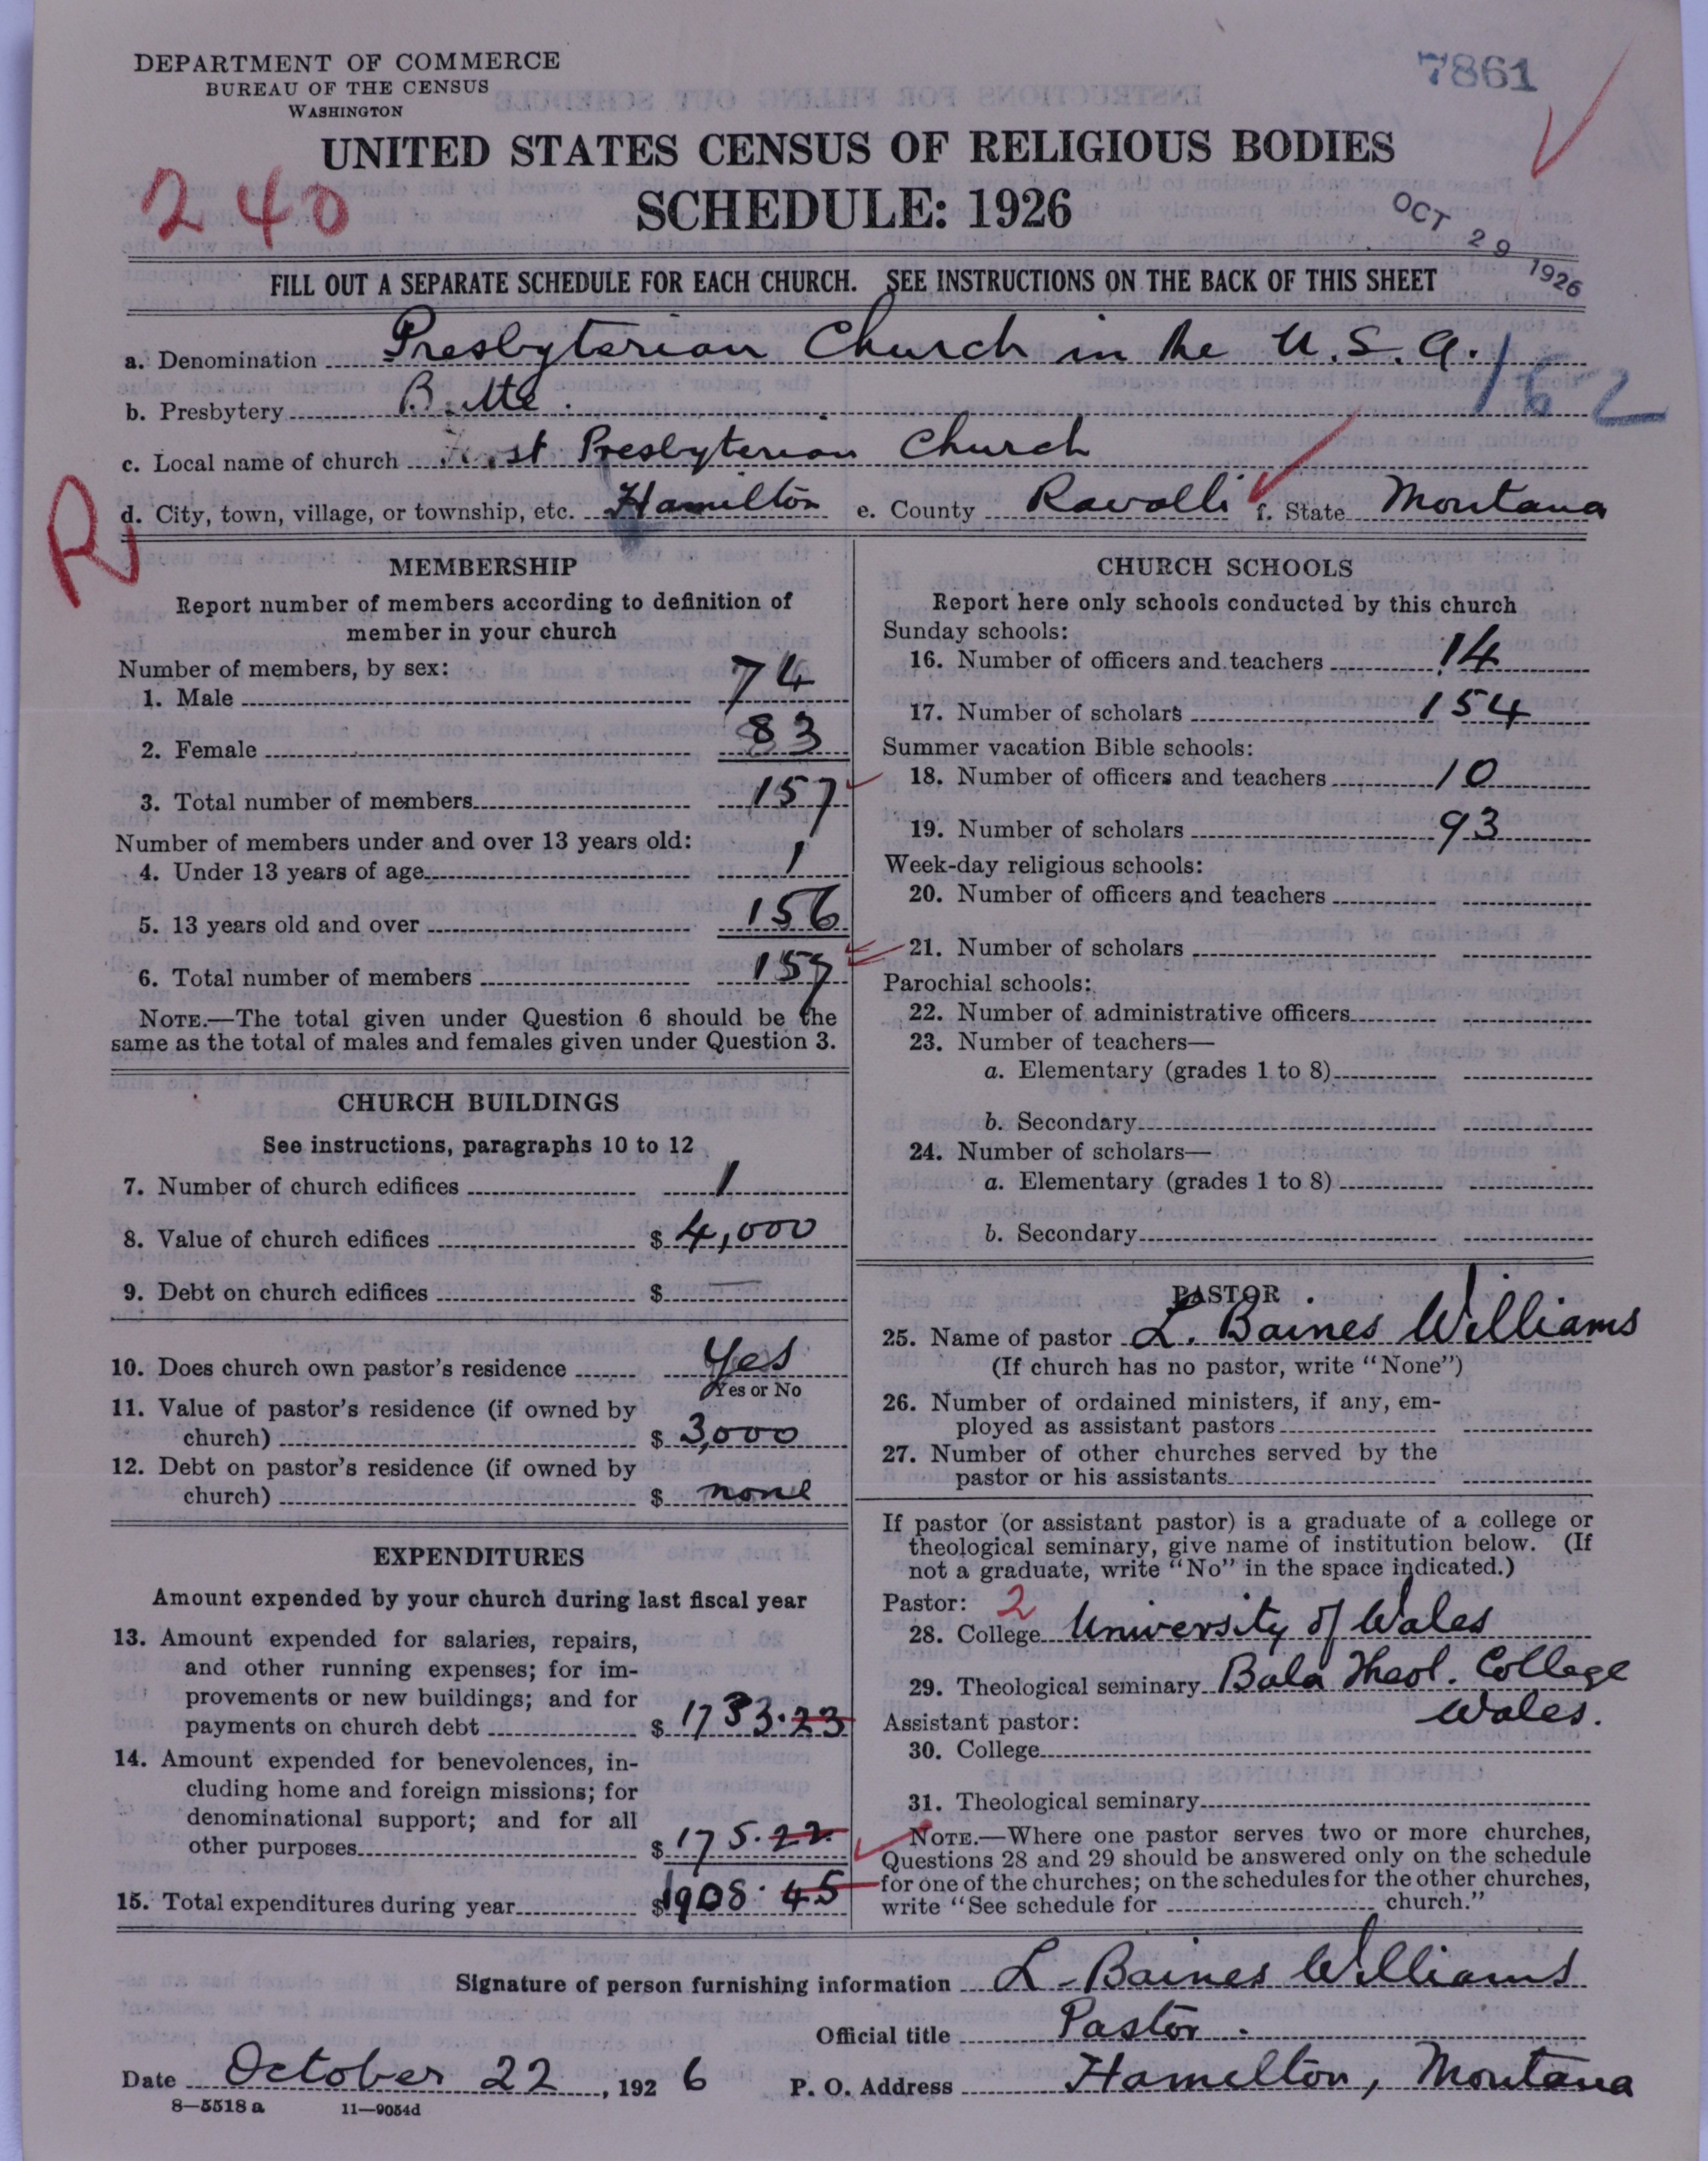 DEPARTMENT OF COMMERCE
BUREAU OF THE CENSUS
WASHINGTON
7861
UNITED STATES CENSUS OF RELIGIOUS BODIES
240
SCHEDULE: 1926
OCT 29 1926
FILL OUT A SEPARATE SCHEDULE FOR EACH CHURCH. SEE INSTRUCTIONS ON THE BACK OF THIS SHEET
a. Denomination Presbyterian Church in the U.S.A.
162
b. Presbytery Butte.
c. Local name of church First Presbyterian Church
R
d. City, town, village, or township, etc. Hamilton e. County Ravalli f. State Montana
MEMBERSHIP
Report number of members according to definition of
member in your church
Number of members, by sex:
1. Male 74
2. Female 83
3. Total number of members 157
Number of members under and over 13 years old:
4. Under 13 years of age 1
5. 13 years old and over 156
6. Total number of members 157
NOTE.—The total given under Question 6 should be the
same as the total of males and females given under Question 3.
CHURCH BUILDINGS
See instructions, paragraphs 10 to 12
7. Number of church edifices 1
8. Value of church edifices $ 4,000
9. Debt on church edifices $ —
10. Does church own pastor's residence Yes
Yes or No
11. Value of pastor's residence (if owned by
church) $ 3,000
12. Debt on pastor's residence (if owned by
church) $ none
EXPENDITURES
Amount expended by your church during last fiscal year
13. Amount expended for salaries, repairs,
and other running expenses; for im-
provements or new buildings; and for
payments on church debt $ 1733.23
14. Amount expended for benevolences, in-
cluding home and foreign missions; for
denominational support; and for all
other purposes $ 175.22
15. Total expenditures during year $ 1908.45
CHURCH SCHOOLS
Report here only schools conducted by this church
Sunday schools:
16. Number of officers and teachers 14
17. Number of scholars 154
Summer vacation Bible schools:
18. Number of officers and teachers 10
19. Number of scholars 93
Week-day religious schools:
20. Number of officers and teachers
21. Number of scholars
Parochial schools:
22. Number of administrative officers
23. Number of teachers—
a. Elementary (grades 1 to 8)
b. Secondary
24. Number of scholars—
a. Elementary (grades 1 to 8)
b. Secondary
PASTOR
25. Name of pastor L. Baines Williams
(If church has no pastor, write "None")
26. Number of ordained ministers, if any, em-
ployed as assistant pastors
27. Number of other churches served by the
pastor or his assistants
If pastor (or assistant pastor) is a graduate of a college or
theological seminary, give name of institution below. (If
not a graduate, write "No" in the space indicated.)
Pastor: 2
28. College University of Wales
29. Theological seminary Bala Theol. College
Wales.
Assistant pastor:
30. College
31. Theological seminary
NOTE.—Where one pastor serves two or more churches,
Questions 28 and 29 should be answered only on the schedule
for one of the churches; on the schedules for the other churches,
write "See schedule for church."
Signature of person furnishing information L. Baines Williams
Official title Pastor.
Date October 22, 1926 P. O. Address Hamilton, Montana
8—5518 a 11—9054d